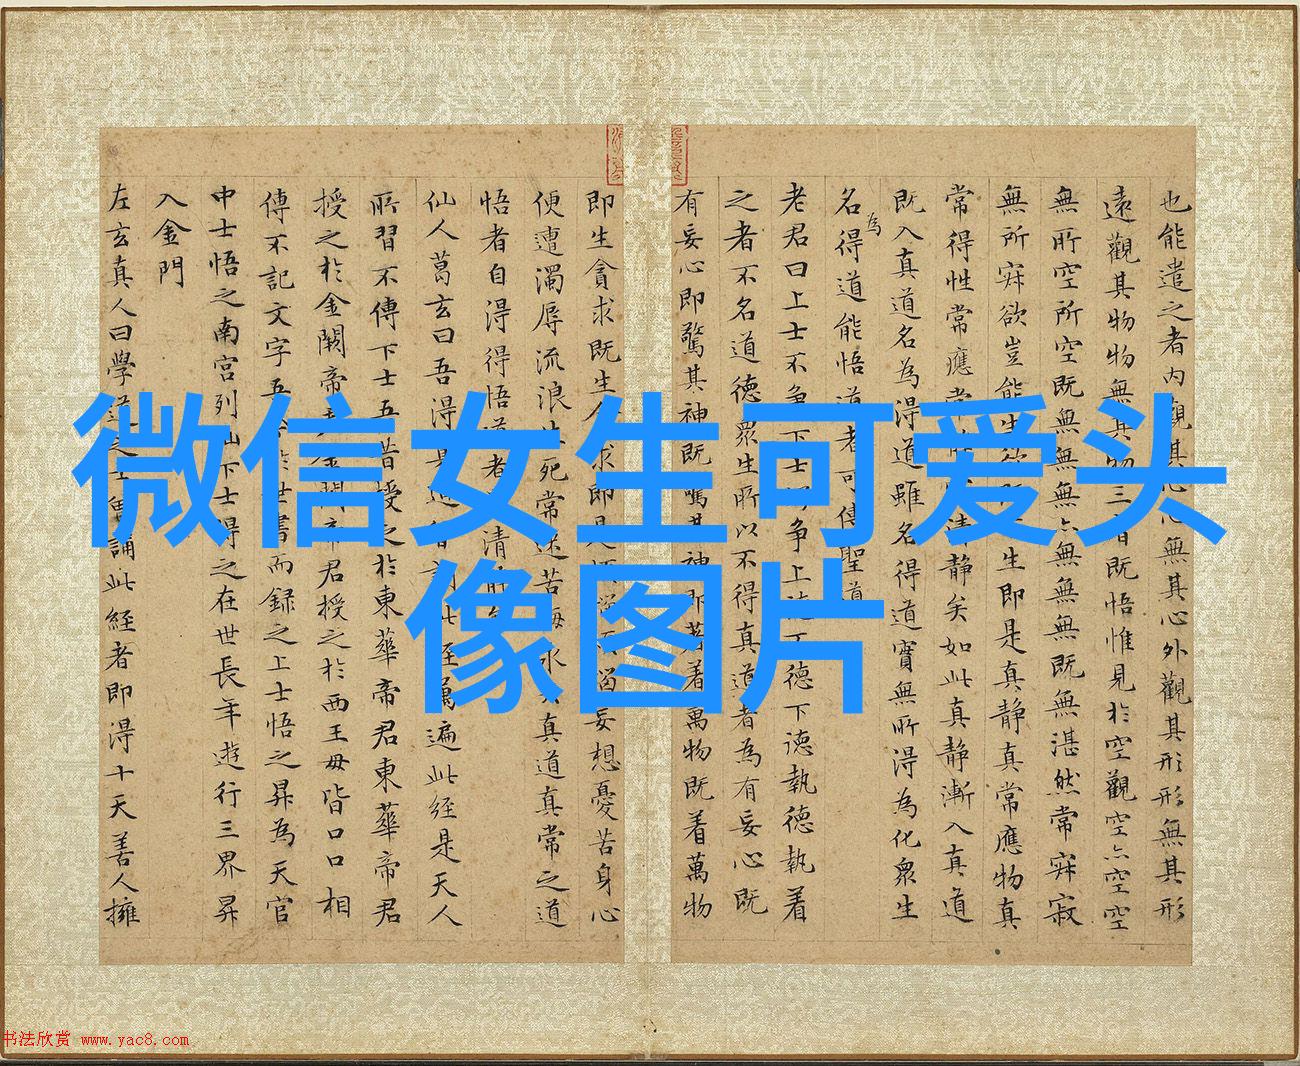 微信女生可爱头
像图片
也能遣之者内觀其心無其心外觀其形形無其形
遠觀其物物無其物三者既悟惟見於空觀空亦空空
無所空所空既無無無亦無無無既無湛然常寂寂
無所寂欲豈能生生即是真静真常應物真
常得性常應常清静矣如此真静漸入真道
既入真道名為得道雖名得道實無所得為化衆生
名為得道能悟道者可傳聖道
老君曰上士不爭下士爭上德下德執德執着
之者不名道德衆生所以不得真道者為有妄心既
有妄心即驚其神既驚其神即着萬物既着萬物
即生貪求既生求即是妄想憂苦身心
便遭濁辱流浪生死常沉苦海永真道真常之道
悟者自得得悟道者清静
仙人葛玄曰吾得真道曾誦此經萬遍此經是天人
所習不傳下士吾昔授之於東華帝君東華帝君
授之於金闕帝君金闕帝君授之於西王母皆口口相
傳不記文字吾於世書而録之上士悟之昇為天官
中士悟之南宫列仙下士得之在世長年遊行三界昇
入金門
左玄真人曰學道之士曾誦此經者即得十天善人擁
书法欣赏 www.yac8.com